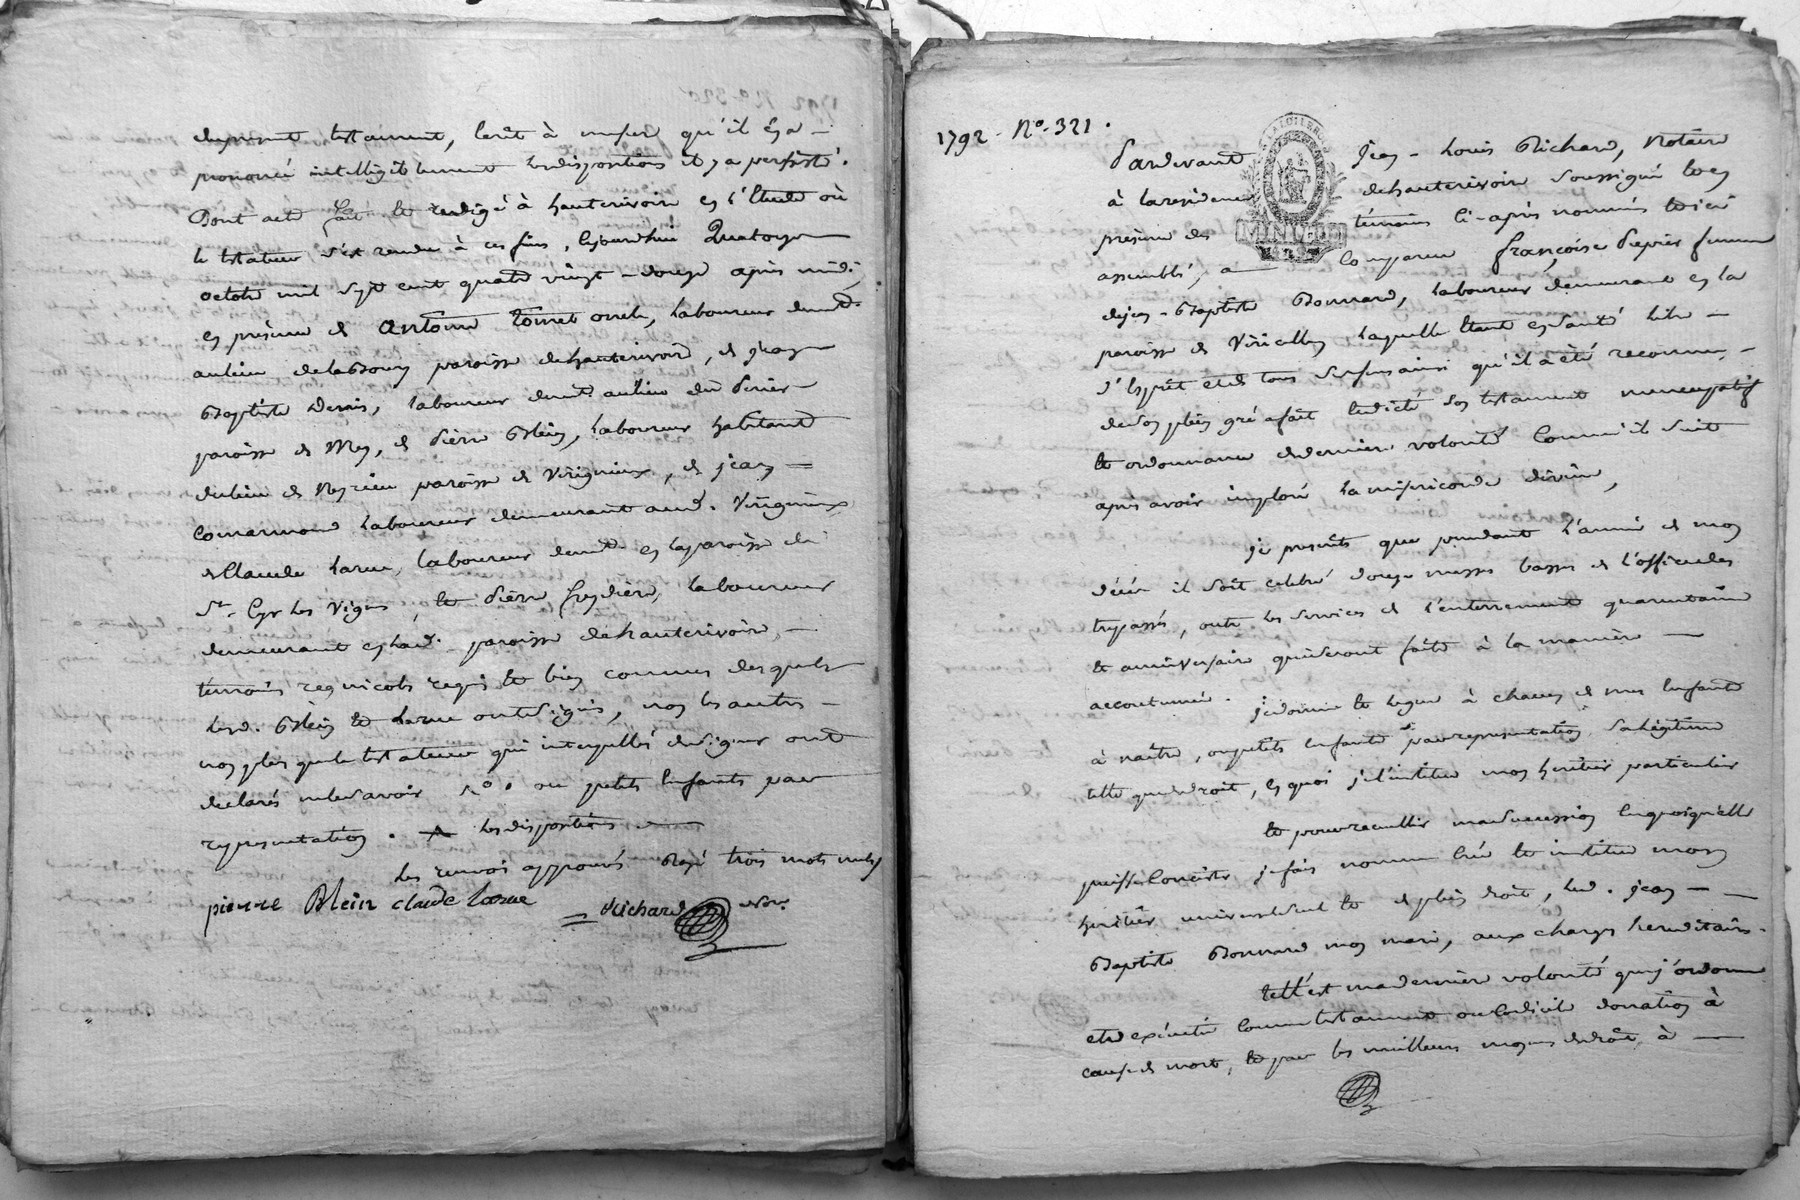 du present testament, lecture à mesure qu'il a
prononcé intelligiblement les dispositions et y a persisté.
Dont acte fait et redigé à hauterivoire en l'étude où
le testateur s'est rendu à ces fins, cejourdhui Quatorze
octobre mil sept cent quatre vingt-douze après midi,
en présence de Antoine tonnet laboureur demt.
au lieu de paroisse dehauterivoire, et jean
Baptiste laboureur demt. au lieu du Perier
paroisse de Mey, de Pierre Blein, laboureur habitant
du lieu de paroisse de Virigneux, de jean
Comarmond laboureur demeurant aud. Virigneux
de Claude Larue, laboureur demt. en la paroisse de
St. Cyr les Vignes, et Pierre freydiere, laboureur
demeurant en lad. paroisse dehauterivoire,
témoins regnicols requis et bien connus desquels
lesd. Blein et Larue ont signés, non les autres
non plus que le testateur qui interpellés de signer ont
declarés ne le savoir ou petits Enfants par
representation. les dispositions
les renvois approuvés. Rayé trois mots nuls
pierre Blein claude Larue Richard nore.
1792 - No. 321.
Pardevant jean-Louis Richard, Notaire
à la residence dehauterivoire soussigné et en
présence des témoins ci-après nommés et ici
assemblés, a comparu françoise Perier femme
de jean-Baptiste Bonnard, laboureur demeurant en la
paroisse de Viricelles laquelle étant en santé libre
d'Esprit et de tous ses sens ainsi qu'il a été reconnu,
de son plein gré a fait et dicté son testament nuncupatif
et ordonnance de derniere volonté comme il suit
après avoir imploré la misericorde divine,
je prescrits que pendant l'année de mon
décès il soit celebré douze messes basses de l'office des
trepassés, outre les services de l'enterrement quarantaine
et anniversaire qui seront faits à la manière
accoutumée.
je donne et legue à chacun de mes Enfants
à naître, ou petits enfants par representation sa légitime
telle que de droit, en quoi je l'institue mon heritier particulier
et pour recueillir ma succession en quoi qu'elle
puisse consister je fais nomme crée et institue mon
heritier universel seul et de plein droit, led. jean
Baptiste Bonnard mon mari, aux charges hereditaires.
telle est ma derniere volonté que j'ordonne
etre exécutée comme testament ou codicile donnation à
cause de mort, et par les meilleurs moyens de droit, à